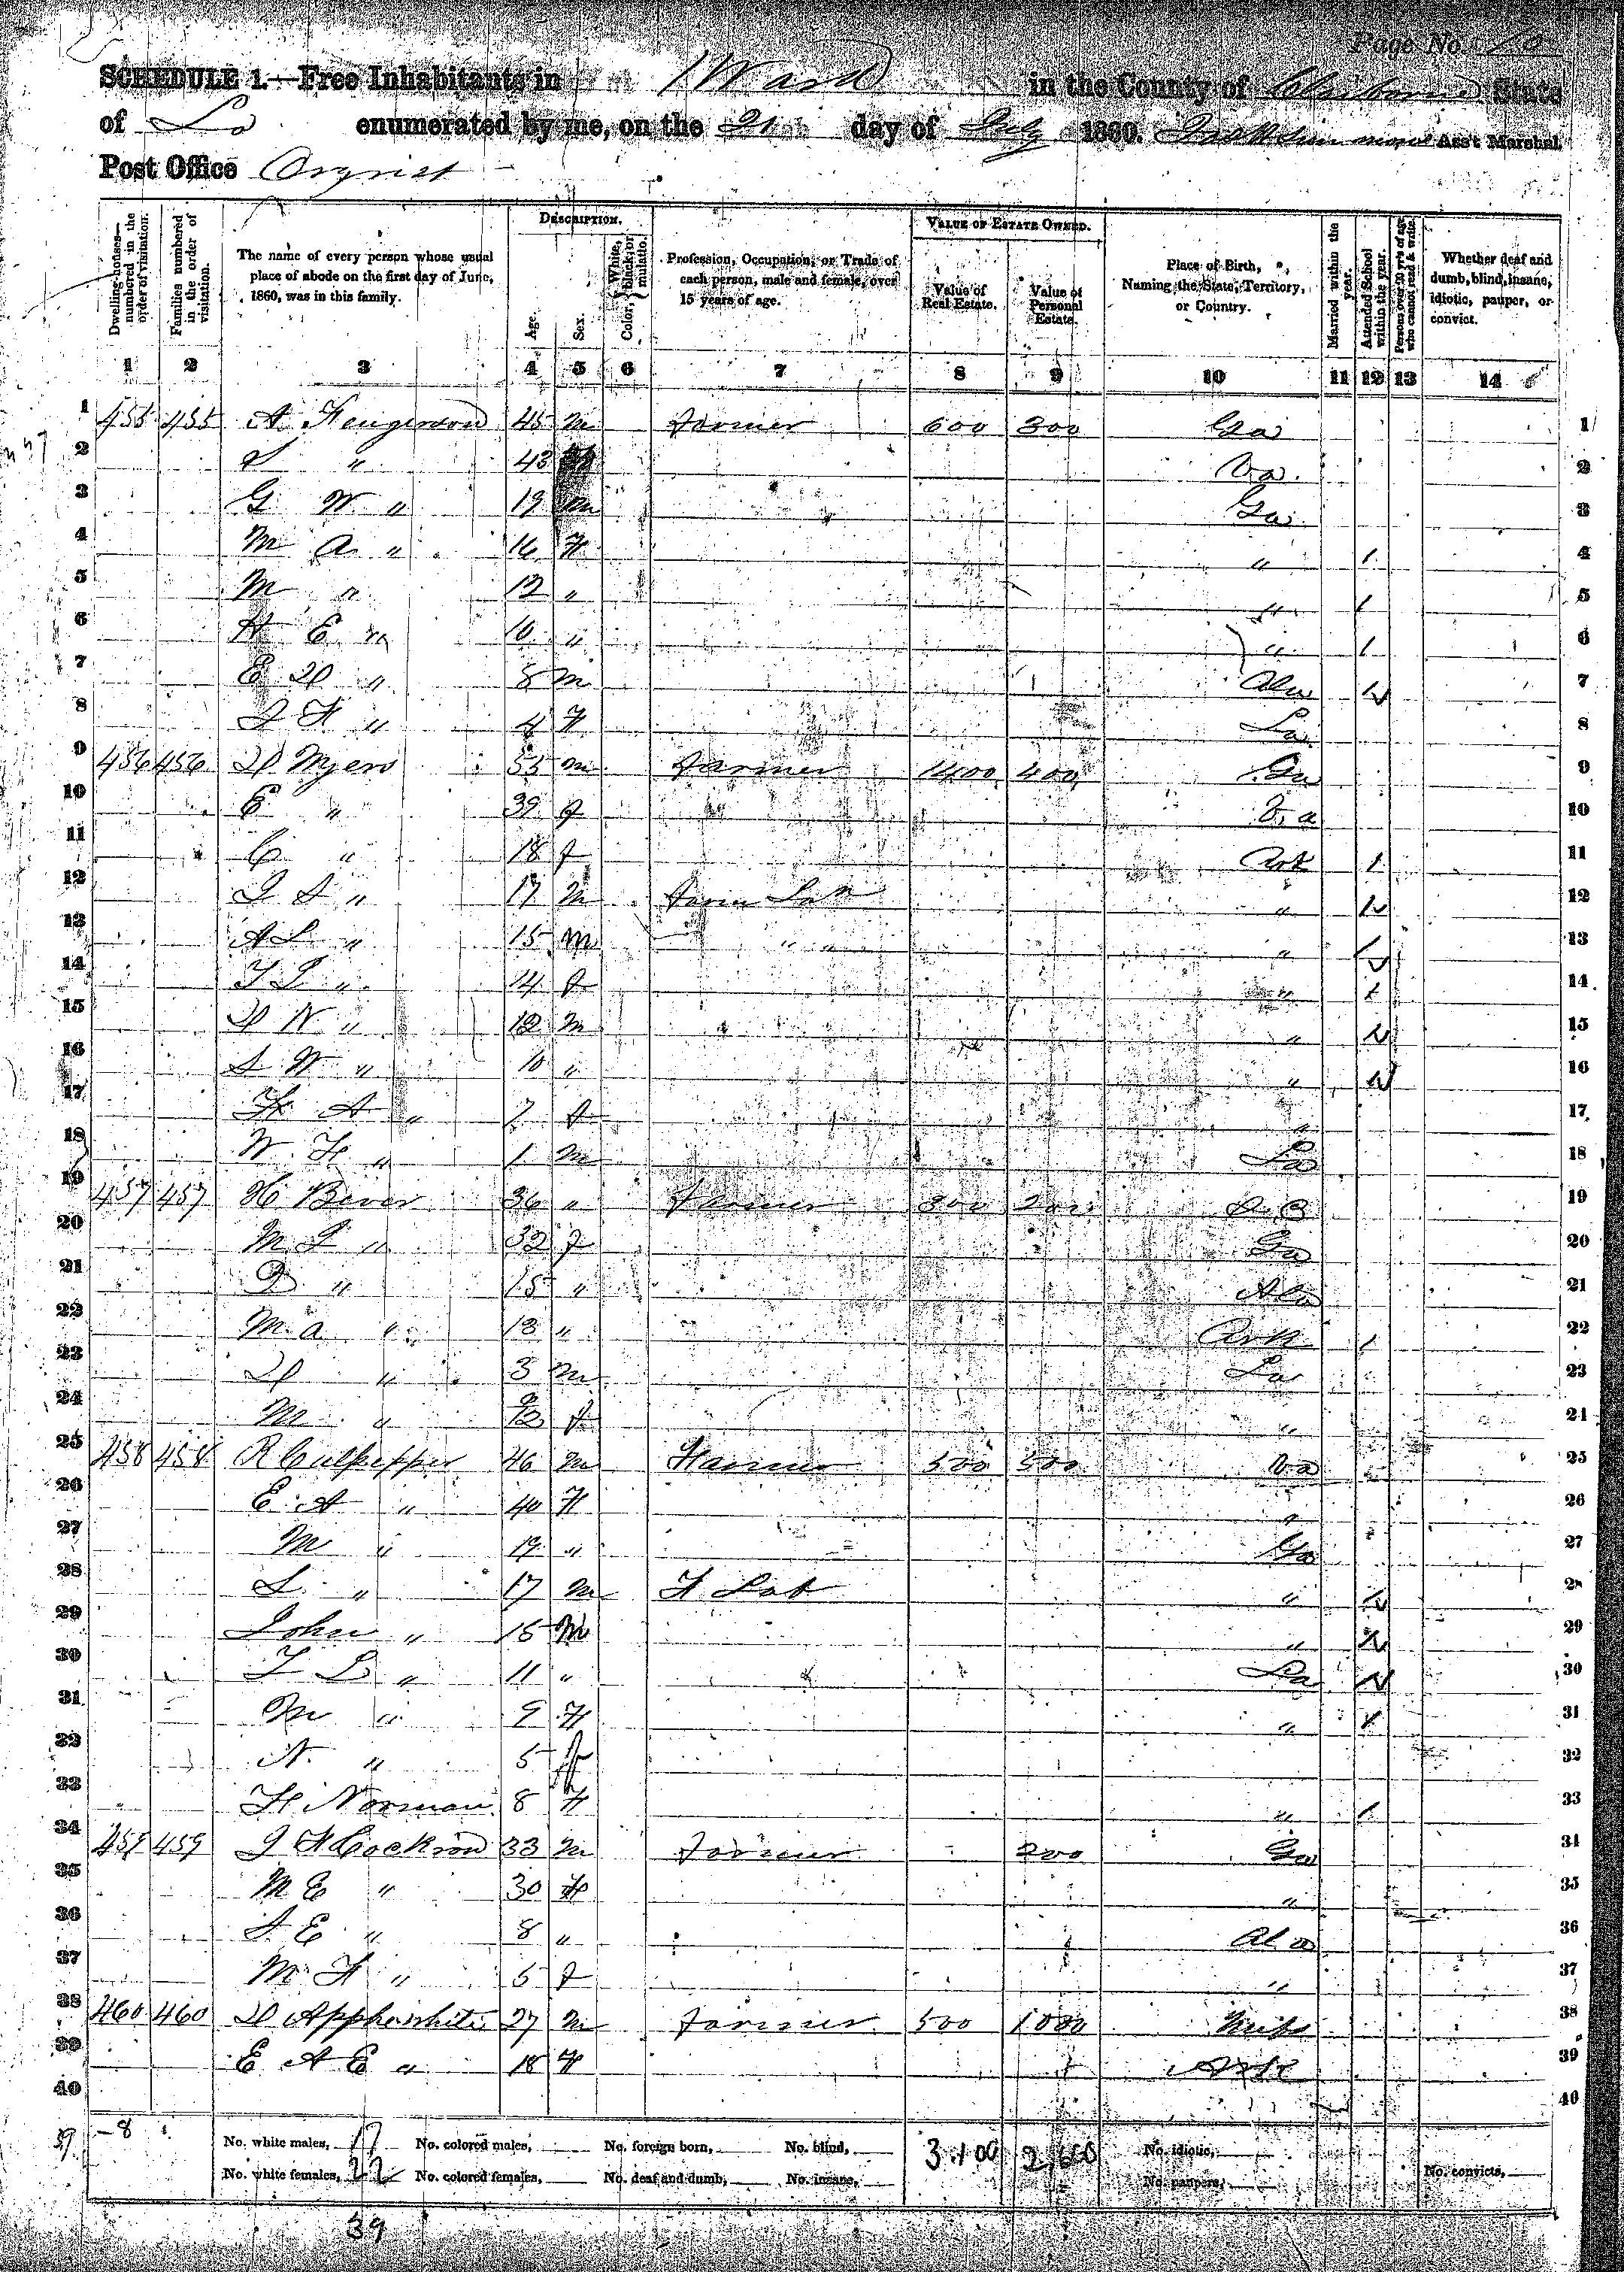 Page No. 70
SCHEDULE 1.—Free Inhabitants in 1 Ward in the County of Claiborne State
of La enumerated by me, on the 21st day of July 1860. Ass't Marshal
Post Office
Dwelling-houses—numbered in the order of visitation.
Families numbered in the order of visitation.
The name of every person whose usual place of abode on the first day of June, 1860, was in this family.
DESCRIPTION.
Age.
Sex.
Color, White, black, or mulatto.
Profession, Occupation, or Trade of each person, male and female, over 15 years of age.
VALUE OF ESTATE OWNED.
Value of Real Estate.
Value of Personal Estate.
Place of Birth, Naming the State, Territory, or Country.
Married within the year.
Attended School within the year.
Persons over 20 y'rs of age who cannot read & write.
Whether deaf and dumb, blind, insane, idiotic, pauper, or convict.
1 2 3 4 5 6 7 8 9 10 11 12 13 14
1 455 455 A 45 m Farmer 600 300 Ga 1
2 " 43 Va. 2
3 G W " 19 m Ga 3
4 M A " 16 F " / 4
5 M " 12 " " / 5
6 H E " 10 " " / 6
7 E D " 8 m Ala / 7
8 J F " 4 F La 8
9 456 456 D Myers 55 m Farmer 1400 400 Ga 9
10 E " 39 f Va 10
11 C " 18 f Ark / 11
12 J S " 17 m Farm Lab " / 12
13 A L " 15 m " " " / 13
14 T L " 14 f " / 14
15 D W " 12 m " / 15
16 S W " 10 " " / 16
17 A " 7 f " 17
18 W F " 1 m La 18
19 457 457 H Bever 36 " Farmer 300 200 19
20 M J " 32 f Ga 20
21 " 15 " Ala 21
22 M A " 13 " Ark / 22
23 D " 3 m La 23
24 M " 9/12 f " 24
25 458 458 R Culpepper 46 m Farmer 500 500 Va 25
26 E A " 40 F " 26
27 M " 19 " Ga 27
28 L " 17 m F Lab " / 28
29 John " 15 m " / 29
30 T L " 11 " La / 30
31 M " 9 F " / 31
32 N. " 5 f 32
33 Norman 8 F " / 33
34 459 459 33 m Farmer 200 Ga 34
35 M E " 30 F " 35
36 S E " 8 " Ala 36
37 M F " 5 f " 37
38 460 460 D Appherwhite 27 m Farmer 500 1000 Miss 38
39 E A E " 18 F Ark 39
40 40
39 — 8 No. white males, 17 No. colored males, No. foreign born, No. blind, 3,100 2,600 No. idiotic,
No. white females, 22 No. colored females, No. deaf and dumb, No. insane, No. paupers, No. convicts,
39